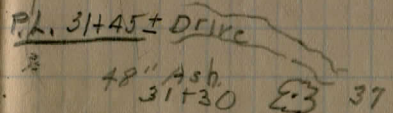 P.L. 31+45± Drive
48" Ash
31+30 37